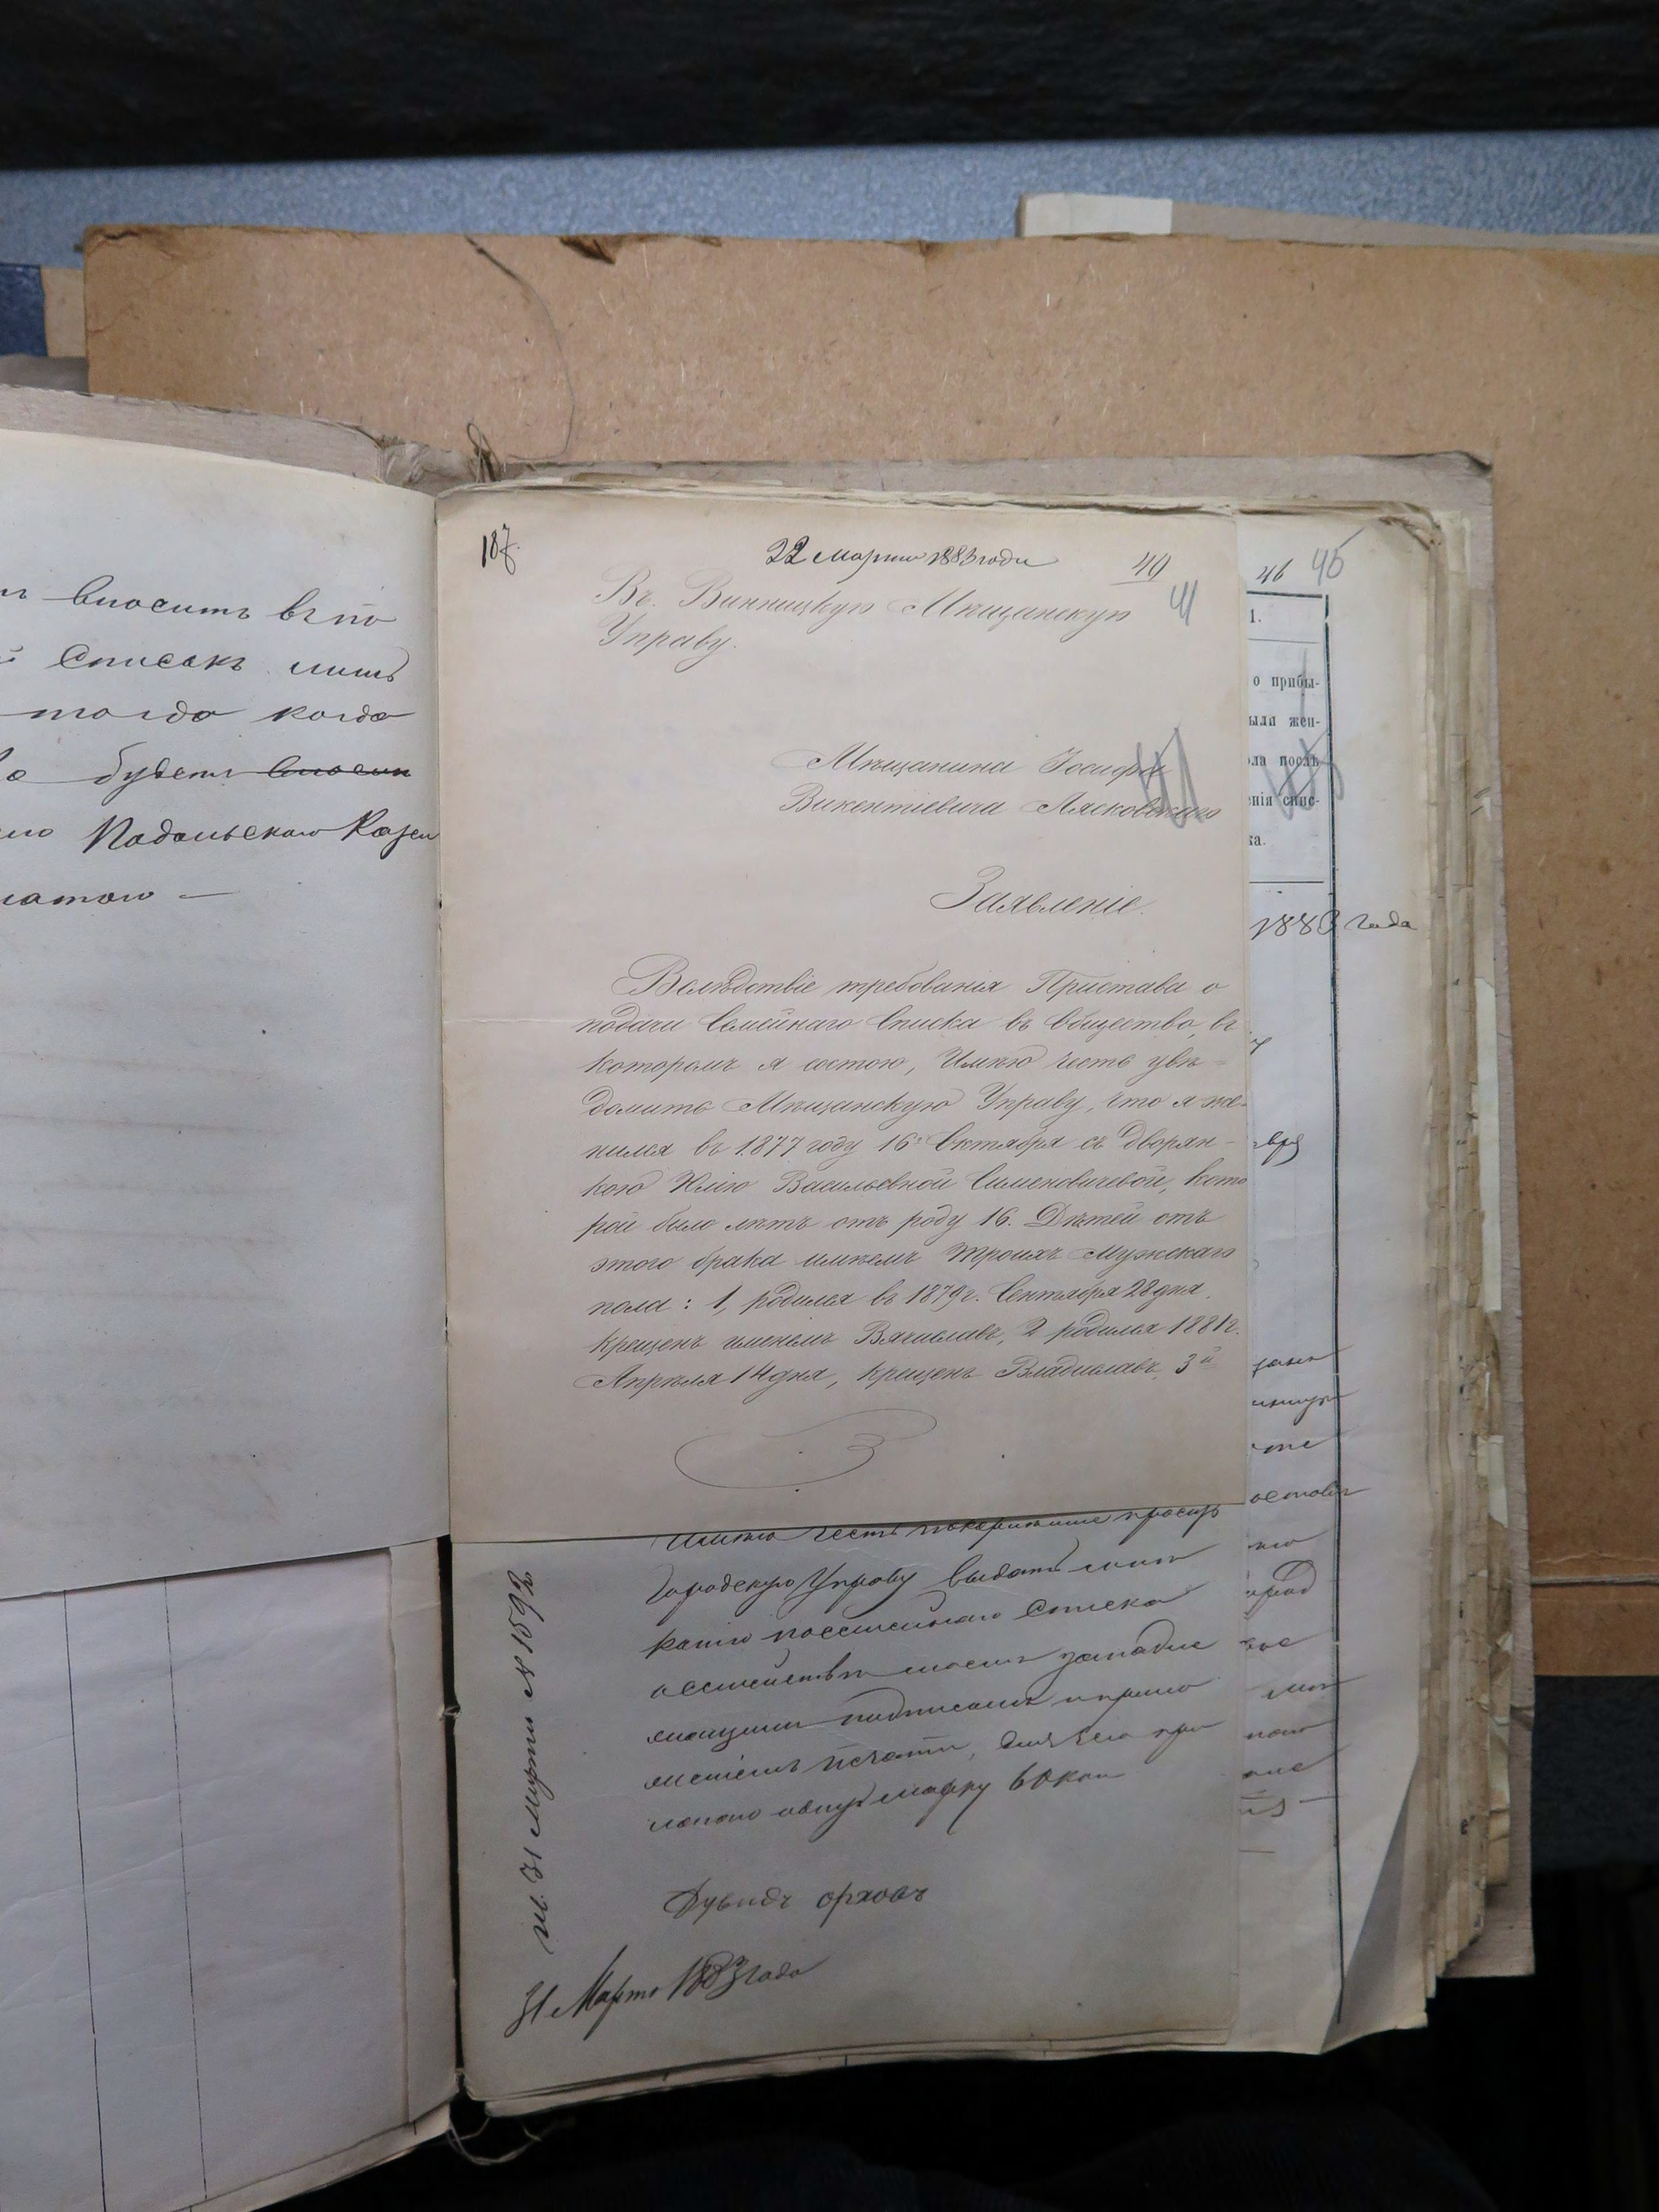 вносить въ по
списокъ лишь
тогда когда
будетъ вносим
Подольскаго Казен
латою —
187.
22 Марта 1883 года
40
41
Въ Винницкую Мѣщанскую
Управу.
Мѣщанина Іосифа
Викентіевича Лясковскаго
41
Заявленіе.
Вслѣдствіе требованія Пристава о
подачи Семейнаго Списка въ Общество, въ
которомъ я состою, Имѣю честь увѣ-
домить Мѣщанскую Управу, что я же-
нился въ 1877 году 16 Октября съ дворян-
кою Юліею Васильевной Симоновичевой, кото
рой было лѣтъ отъ роду 16. Дѣтей отъ
этого брака имѣемъ троихъ Мужскаго
пола: 1, родился въ 1879 г. Сентября 28 дня,
крещенъ именемъ Вячиславъ, 2 родился 1881 г.
Апрѣля 14 дня, крещенъ Владиславъ, 3й
Имѣю честь покорнѣйше просить
Городскую Управу выдать мнѣ
копію посемейнаго Списка
о семействѣ моемъ за надле
жащимъ подписомъ и прило
женіемъ печати, для чего при
лагаю марку 60 коп
Дувидъ
31 Марта 1883 года
31 Марта № 1592
46
45
1.
о прибы-
ыли жен-
ола послѣ
енія спис-
ка.
1883 года